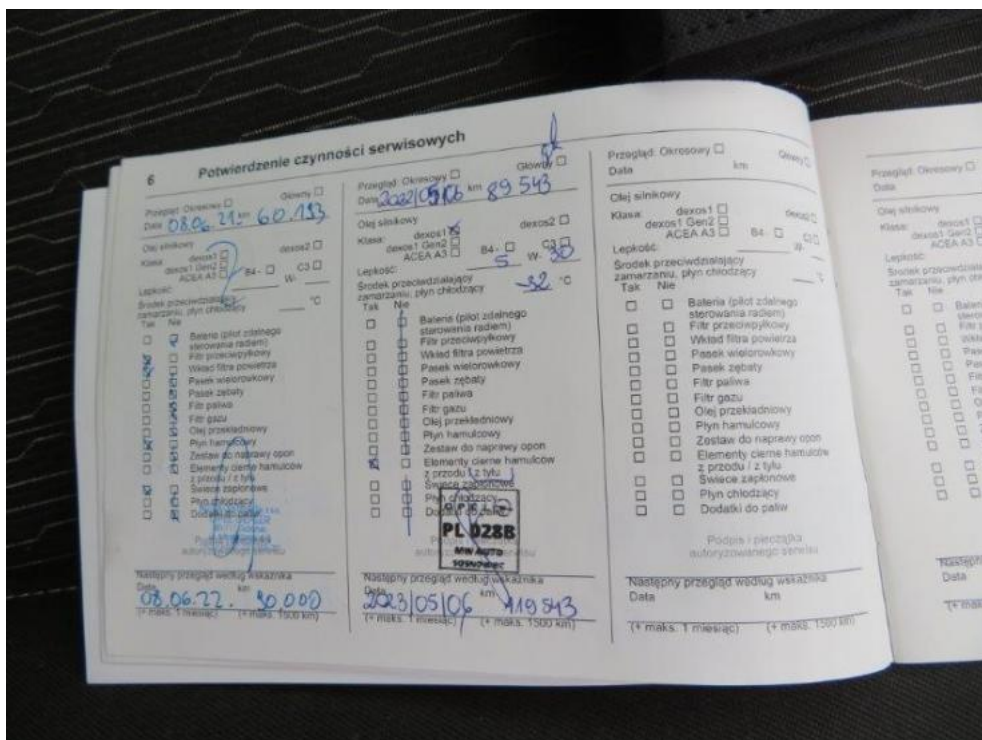 6 Potwierdzenie czynności serwisowych
Przegląd: Okresowy Główny
Data 08.06.21 km 60.193
Olej silnikowy
Klasa: dexos1 dexos2
dexos1 Gen2
ACEA A3 B4- C3
Lepkość: W-
Środek przeciwdziałający
zamarzaniu, płyn chłodzący °C
Tak Nie
Bateria (pilot zdalnego
sterowania radiem)
Filtr przeciwpyłkowy
Wkład filtra powietrza
Pasek wielorowkowy
Pasek zębaty
Filtr paliwa
Filtr gazu
Olej przekładniowy
Płyn hamulcowy
Zestaw do naprawy opon
Elementy cierne hamulców
z przodu / z tyłu
Świece zapłonowe
Płyn chłodzący
Dodatki do paliw
Następny przegląd według wskaźnika
Data km
08.06.22. 90.000
(+ maks. 1 miesiąc) (+ maks. 1500 km)
Przegląd: Okresowy Główny
Data 2022/05/06 km 89 543
Olej silnikowy
Klasa: dexos1 dexos2
dexos1 Gen2
ACEA A3 B4- C3
Lepkość: 5 W- 30
Środek przeciwdziałający
zamarzaniu, płyn chłodzący -32 °C
Tak Nie
Bateria (pilot zdalnego
sterowania radiem)
Filtr przeciwpyłkowy
Wkład filtra powietrza
Pasek wielorowkowy
Pasek zębaty
Filtr paliwa
Filtr gazu
Olej przekładniowy
Płyn hamulcowy
Zestaw do naprawy opon
Elementy cierne hamulców
z przodu / z tyłu
Świece zapłonowe
Płyn chłodzący
Dodatki do paliw
OPEL
PL 028B
MW AUTO
SOSNOWIEC
Następny przegląd według wskaźnika
Data km
2023/05/06 119 543
(+ maks. 1 miesiąc) (+ maks. 1500 km)
Przegląd: Okresowy Główny
Data km
Olej silnikowy
Klasa: dexos1 dexos2
dexos1 Gen2
ACEA A3 B4- C3
Lepkość: W-
Środek przeciwdziałający
zamarzaniu, płyn chłodzący °C
Tak Nie
Bateria (pilot zdalnego
sterowania radiem)
Filtr przeciwpyłkowy
Wkład filtra powietrza
Pasek wielorowkowy
Pasek zębaty
Filtr paliwa
Filtr gazu
Olej przekładniowy
Płyn hamulcowy
Zestaw do naprawy opon
Elementy cierne hamulców
z przodu / z tyłu
Świece zapłonowe
Płyn chłodzący
Dodatki do paliw
Podpis i pieczątka
autoryzowanego serwisu
Następny przegląd według wskaźnika
Data km
(+ maks. 1 miesiąc) (+ maks. 1500 km)
Przegląd: Okresowy
Data
Olej silnikowy
Klasa: dexos1
dexos1 Gen2
ACEA A3
Lepkość:
Tak Nie